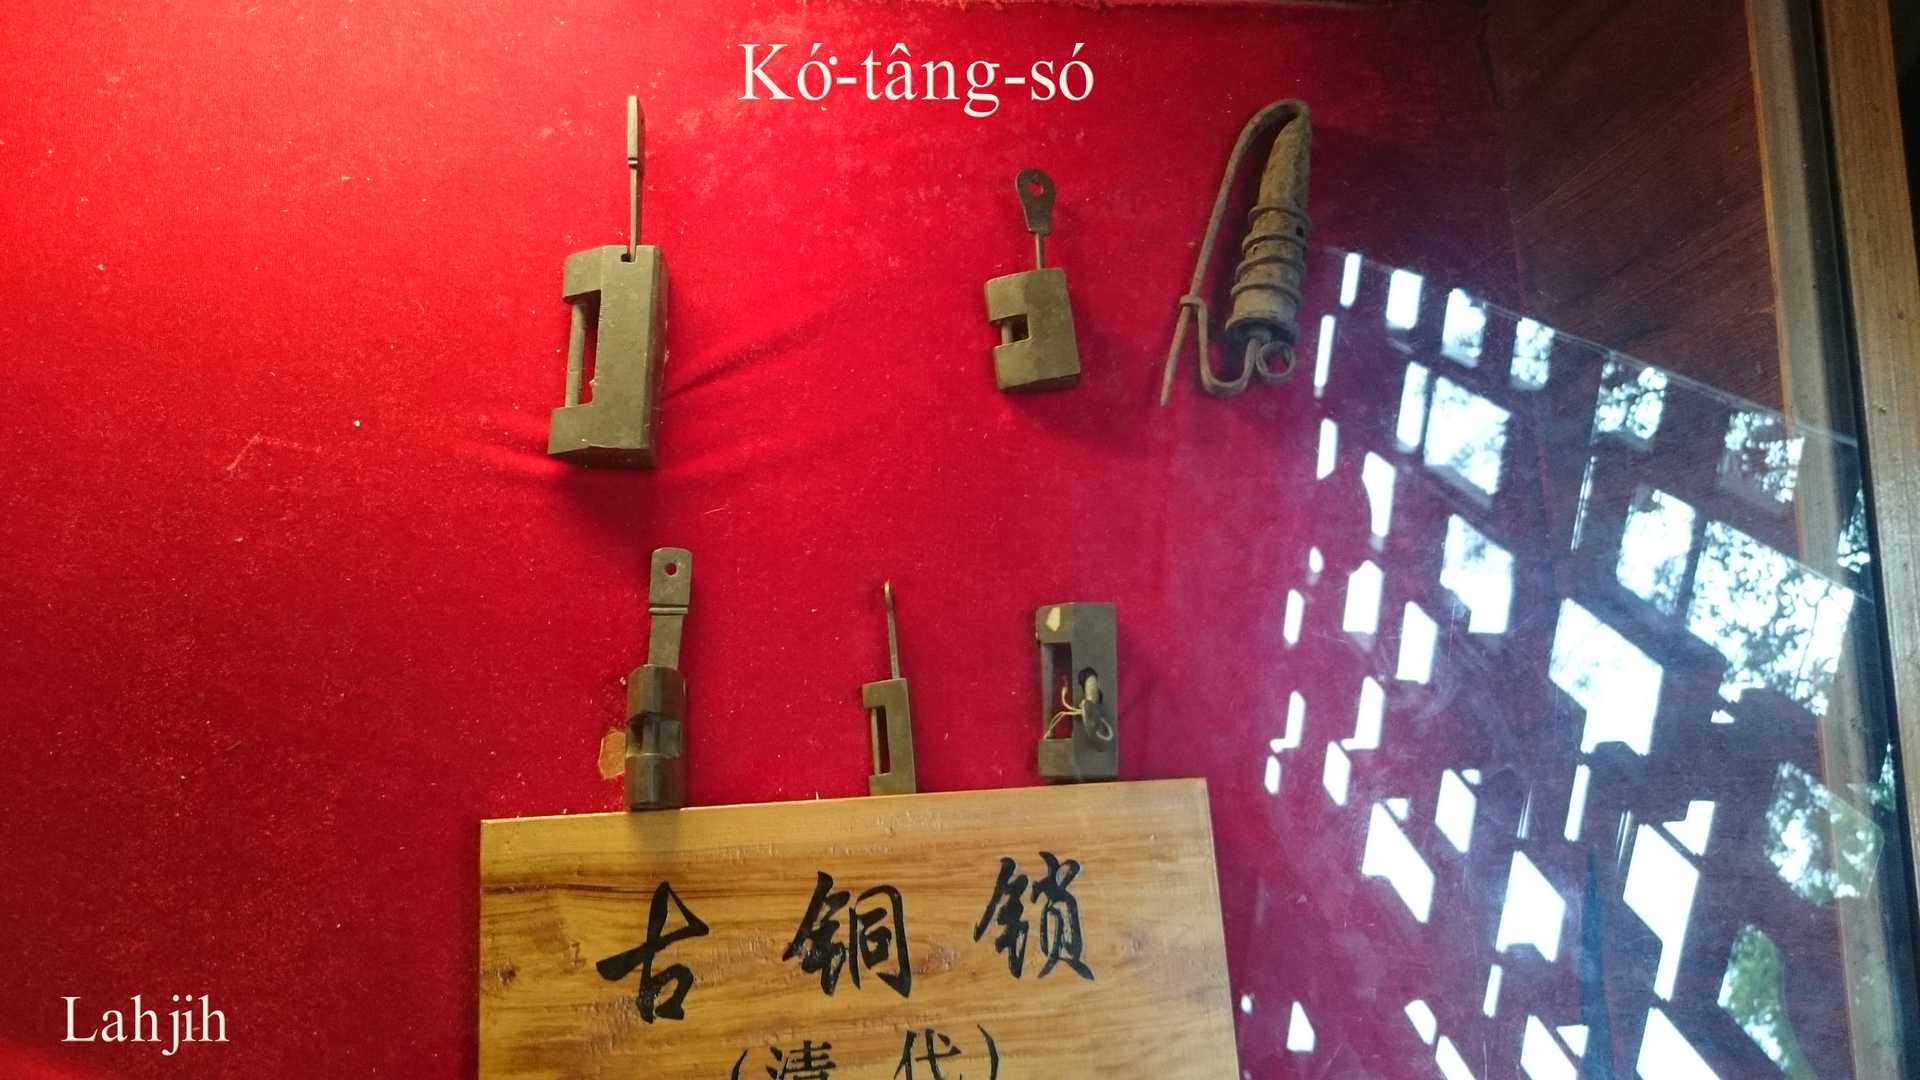 Kó͘-tâng-só
古铜锁
(清代)
Lahjih